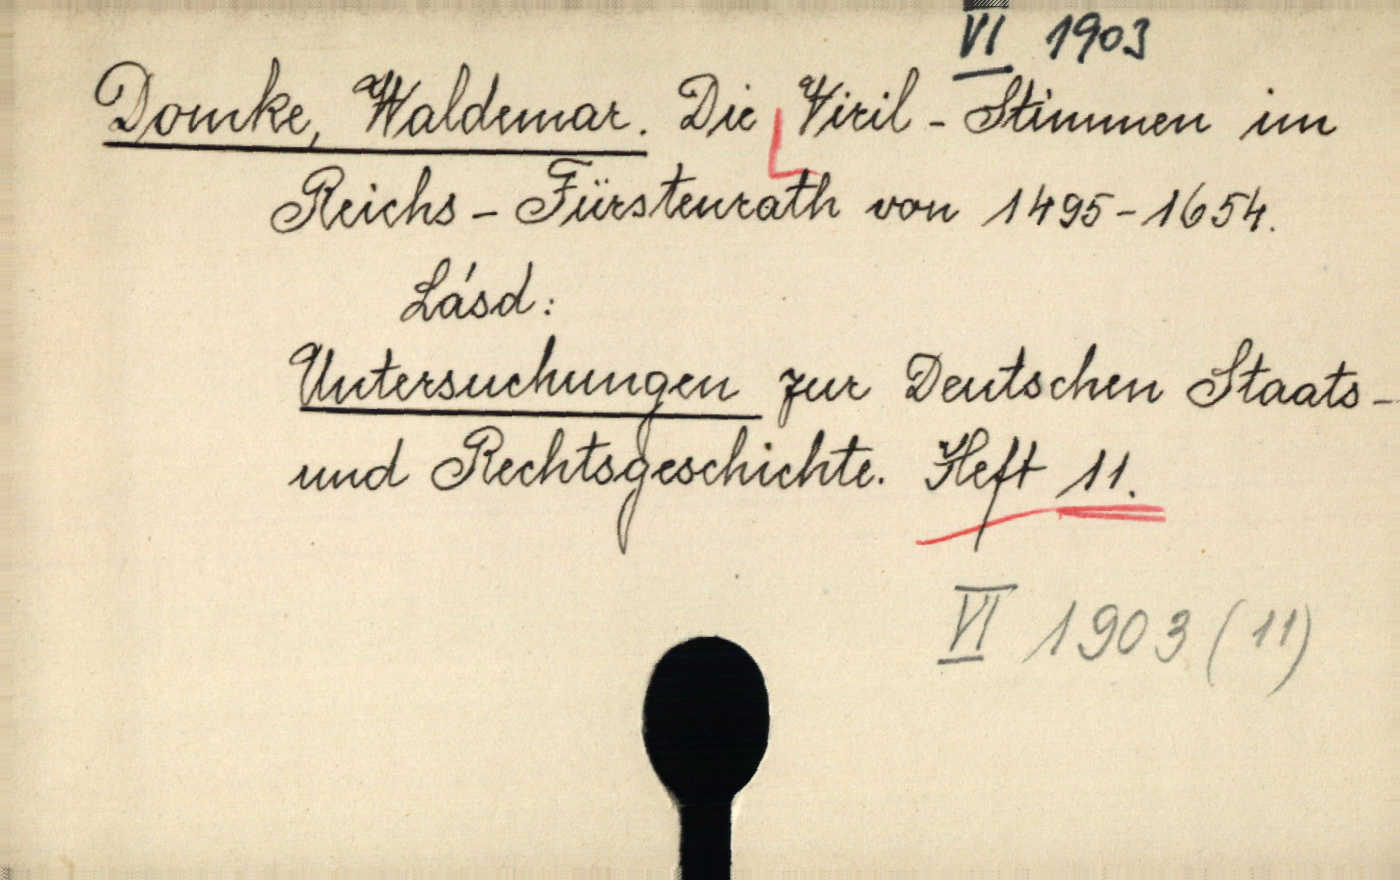 VI 1903
Domke, Waldemar. Die Viril - Stimmen im
Reichs - Fürstenrath von 1495-1654.
Lásd:
Untersuchungen zur Deutschen Staats-
und Rechtsgeschichte. Heft 11.
VI 1903 (11)